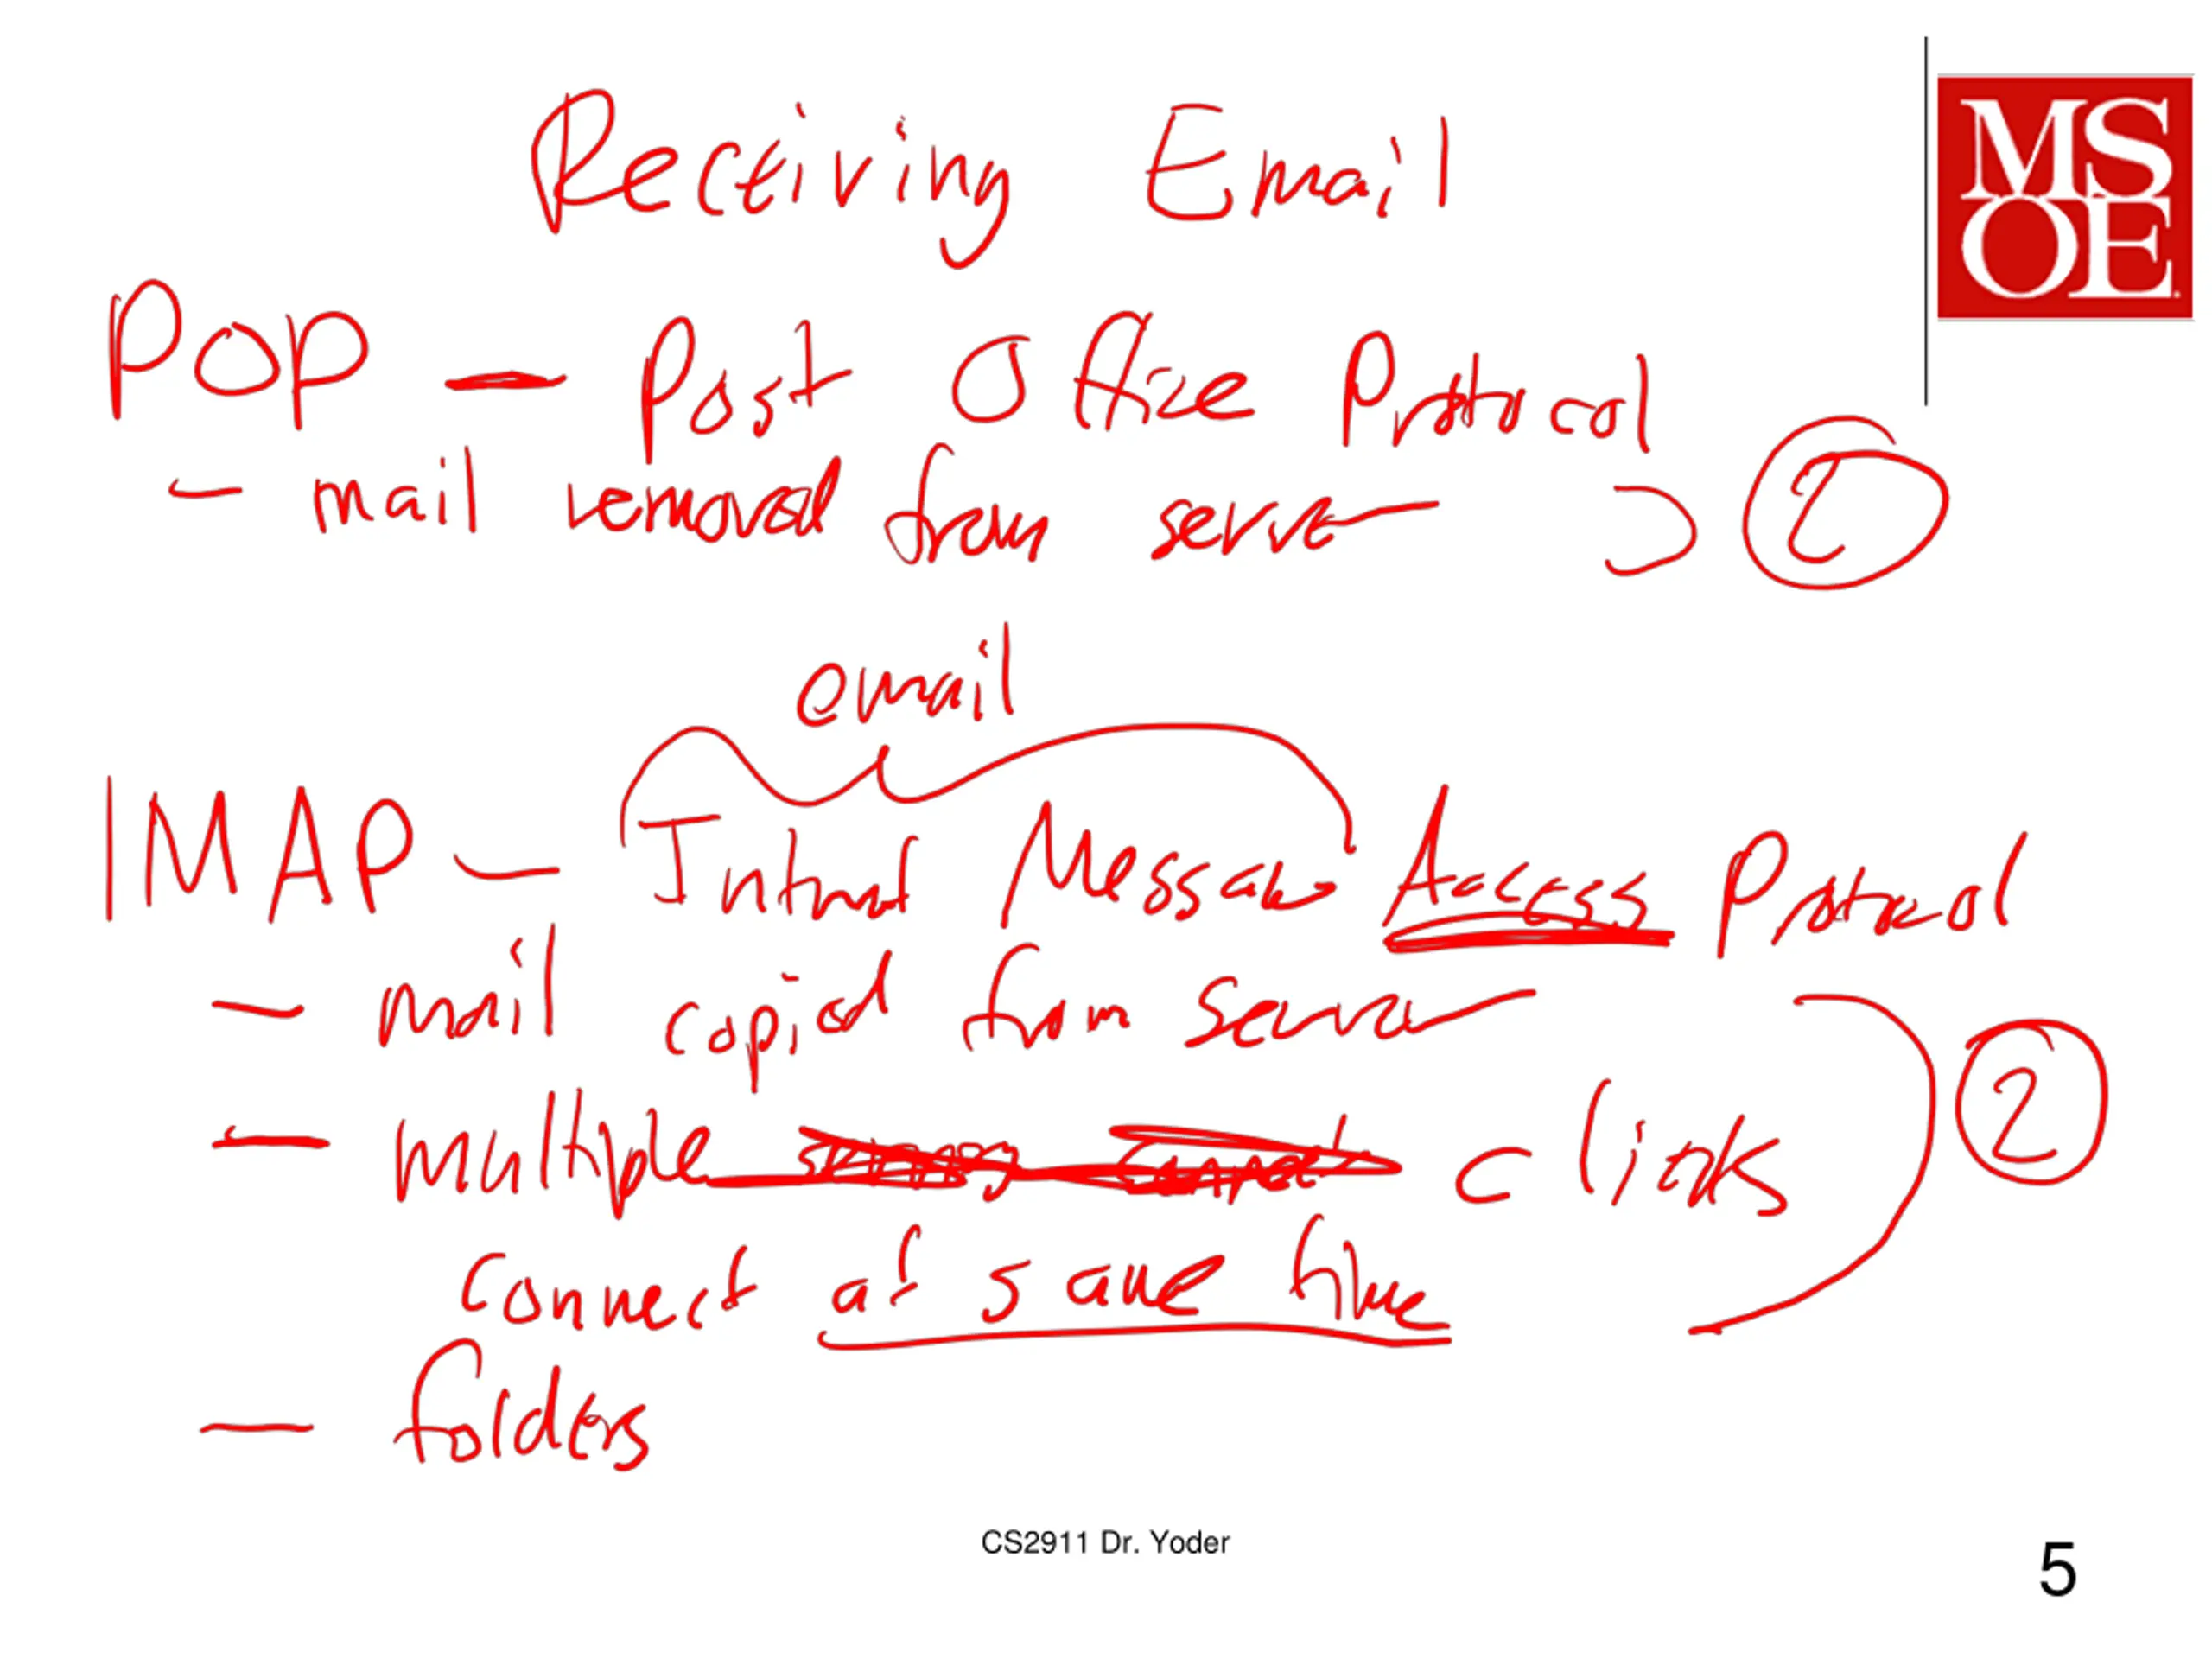 Receiving Email
MS
OE
POP - Post Office Protocol
- mail removed from server ①
email
IMAP - Internet Message Access Protocol
- mail copied from server
- multiple clients ②
connect at same time
- folders
CS2911 Dr. Yoder
5